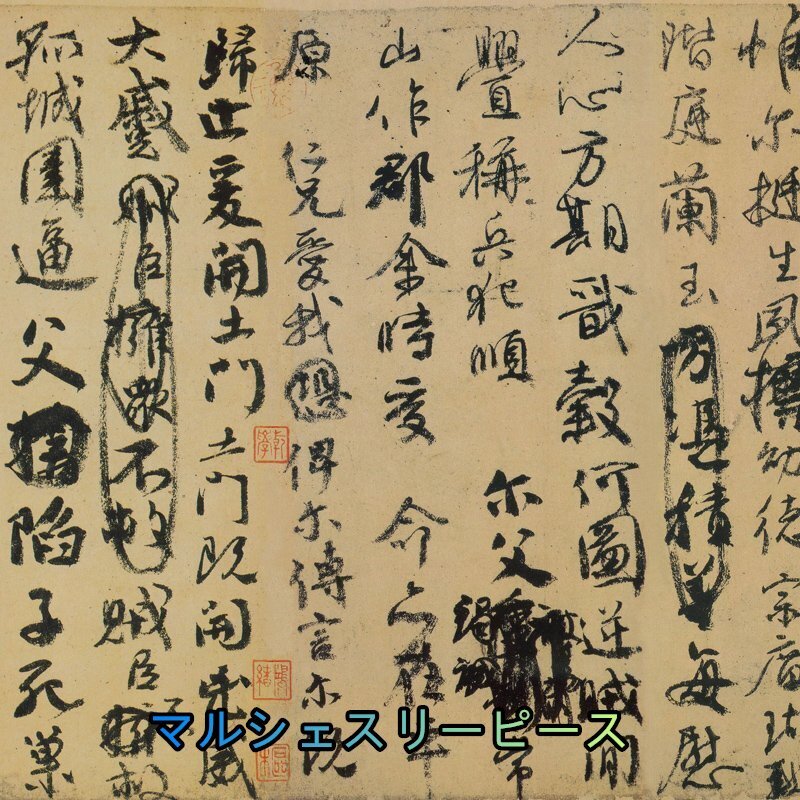 惟爾挺生夙標幼德宗廟瑚璉
階庭蘭玉方憑積善每慰
人心方期戩穀何圖逆賊閒
釁稱兵犯順 爾父竭誠常
山作郡余時受 命亦在平
原 仁兄愛我恐俾尔傳言尔既
歸止爰開土門土門既開凶威
大蹙賊臣擁眾不救賊臣擁救
孤城圍逼父擒陷子死巢
マルシェスリーピース